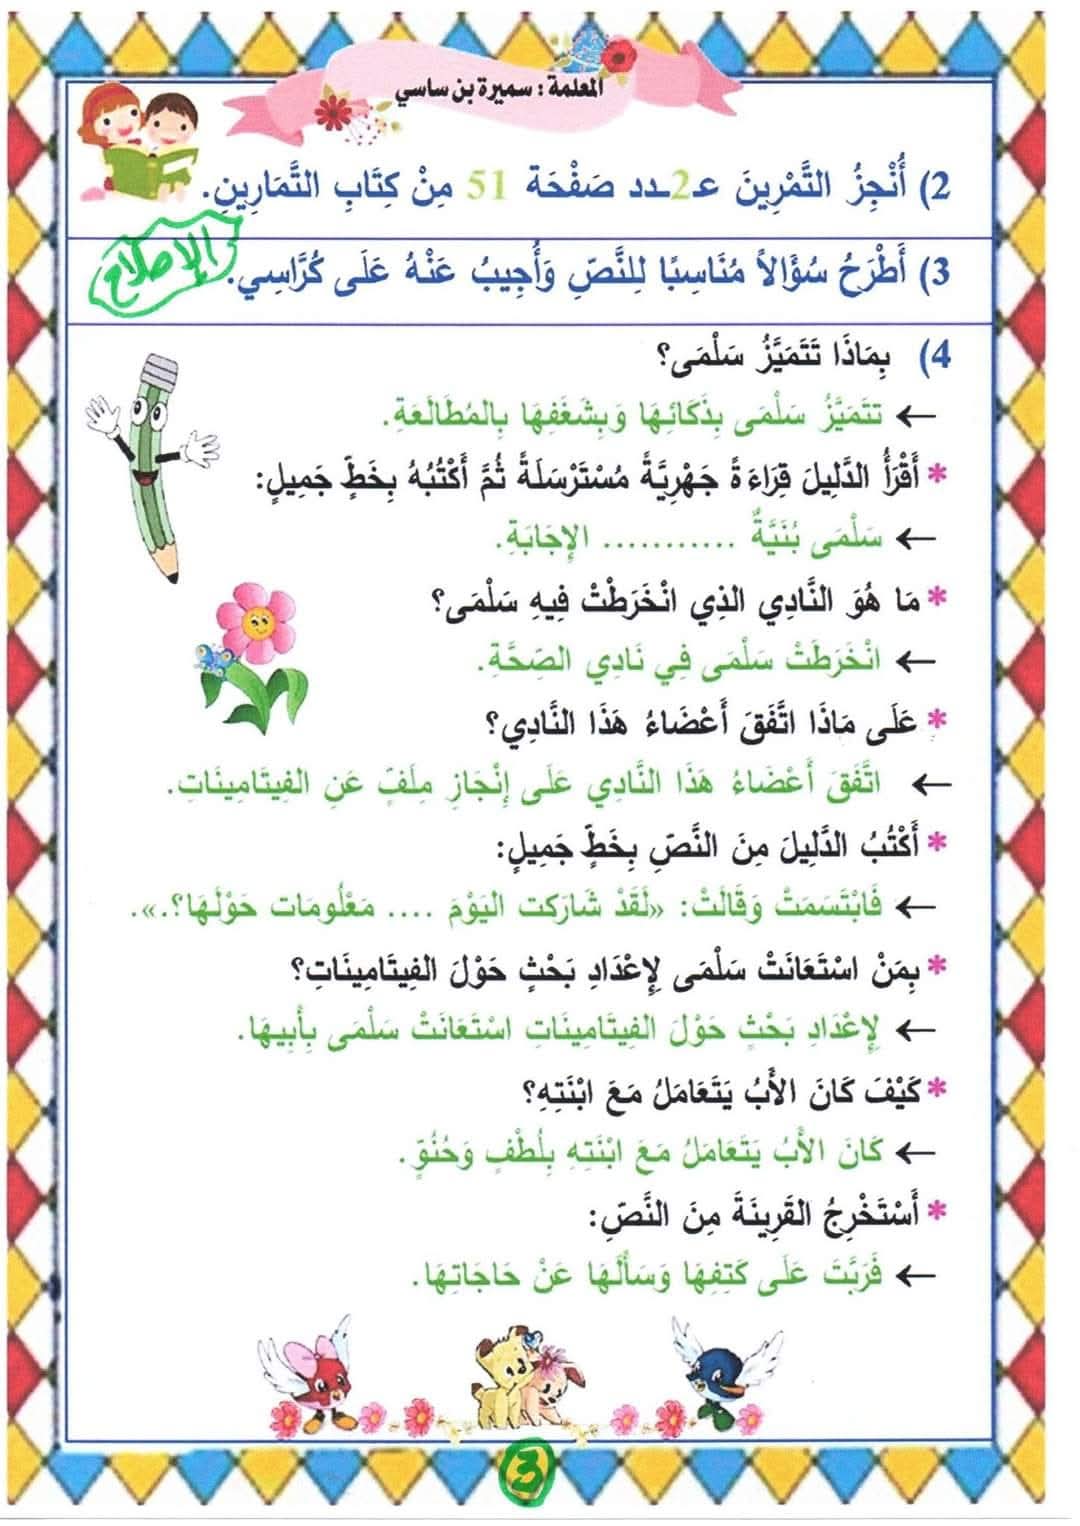 المعلمة : سميرة بن ساسي
2) أُنْجِزُ التَّمْرِينَ عـ2ـدد صَفْحَة 51 مِنْ كِتَابِ التَّمَارِينِ.
الإصلاح
3) أَطْرَحُ سُؤَالاً مُنَاسِبًا لِلنَّصِّ وَأُجِيبُ عَنْهُ عَلَى كُرَّاسِي.
4) بِمَاذَا تَتَمَيَّزُ سَلْمَى؟
← تتَمَيَّزُ سَلْمَى بِذَكَائِهَا وَبِشَغَفِهَا بِالمُطَالَعَةِ.
* أَقْرَأُ الدَّلِيلَ قِرَاءَةً جَهْرِيَّةً مُسْتَرْسَلَةً ثُمَّ أَكْتُبُهُ بِخَطٍّ جَمِيلٍ:
← سَلْمَى بُنَيَّةٌ ........... الإِجَابَةِ.
* مَا هُوَ النَّادِي الذِي انْخَرَطْتْ فِيهِ سَلْمَى؟
← انْخَرَطَتْ سَلْمَى فِي نَادِي الصِّحَّةِ.
* عَلَى مَاذَا اتَّفَقَ أَعْضَاءُ هَذَا النَّادِي؟
← اتَّفَقَ أَعْضَاءُ هَذَا النَّادِي عَلَى إِنْجَازِ مِلَفٍّ عَنِ الفِيتَامِينَاتِ.
* أَكْتُبُ الدَّلِيلَ مِنَ النَّصِّ بِخَطٍّ جَمِيلٍ:
← فَابْتَسَمَتْ وَقَالَتْ: «لَقَدْ شَارَكت اليَوْمَ .... مَعْلُومَات حَوْلَهَا؟.».
* بِمَنْ اسْتَعَانَتْ سَلْمَى لِإِعْدَادِ بَحْثٍ حَوْلَ الفِيتَامِينَاتِ؟
← لِإِعْدَادِ بَحْثٍ حَوْلَ الفِيتَامِينَاتِ اسْتَعَانَتْ سَلْمَى بِأَبِيهَا.
* كَيْفَ كَانَ الأَبُ يَتَعَامَلُ مَعَ ابْنَتِهِ؟
← كَانَ الأَبُ يَتَعَامَلُ مَعَ ابْنَتِهِ بِلُطْفٍ وَحُنُوٍّ.
* أَسْتَخْرِجُ القَرِينَةَ مِنَ النَّصِّ:
← فَرَبَّتَ عَلَى كَتِفِهَا وَسَأَلَهَا عَنْ حَاجَاتِهَا.
3